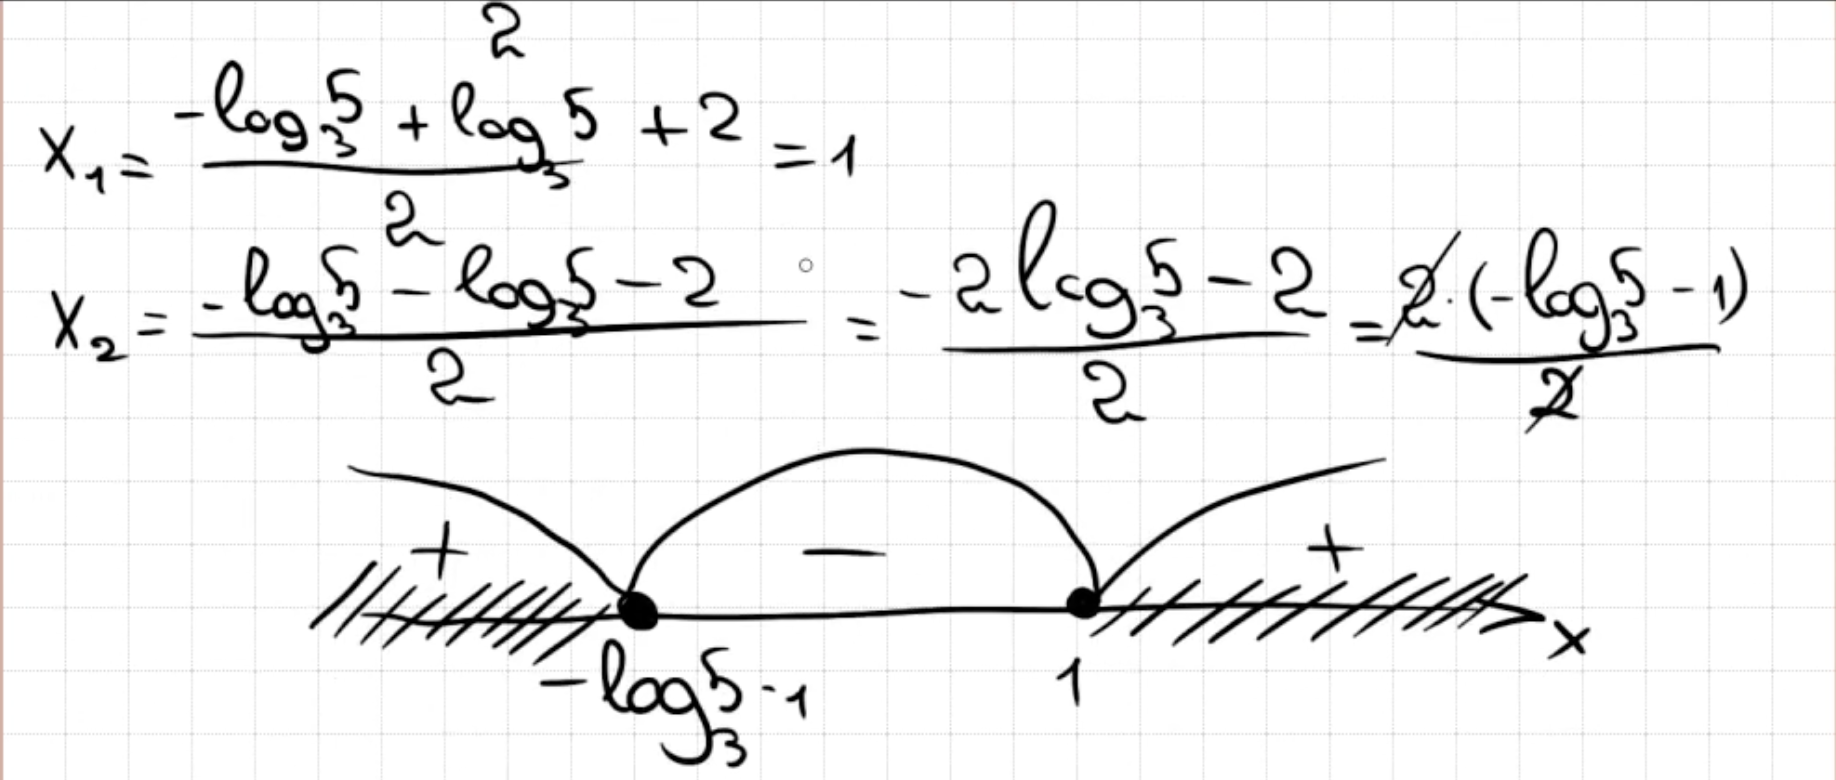 2
x₁ = (-log₃5 + log₃5 + 2)/2 = 1
x₂ = (-log₃5 - log₃5 - 2)/2 = (-2log₃5 - 2)/2 = (2·(-log₃5 - 1))/2
+ − +
-log₃5 - 1 1 x